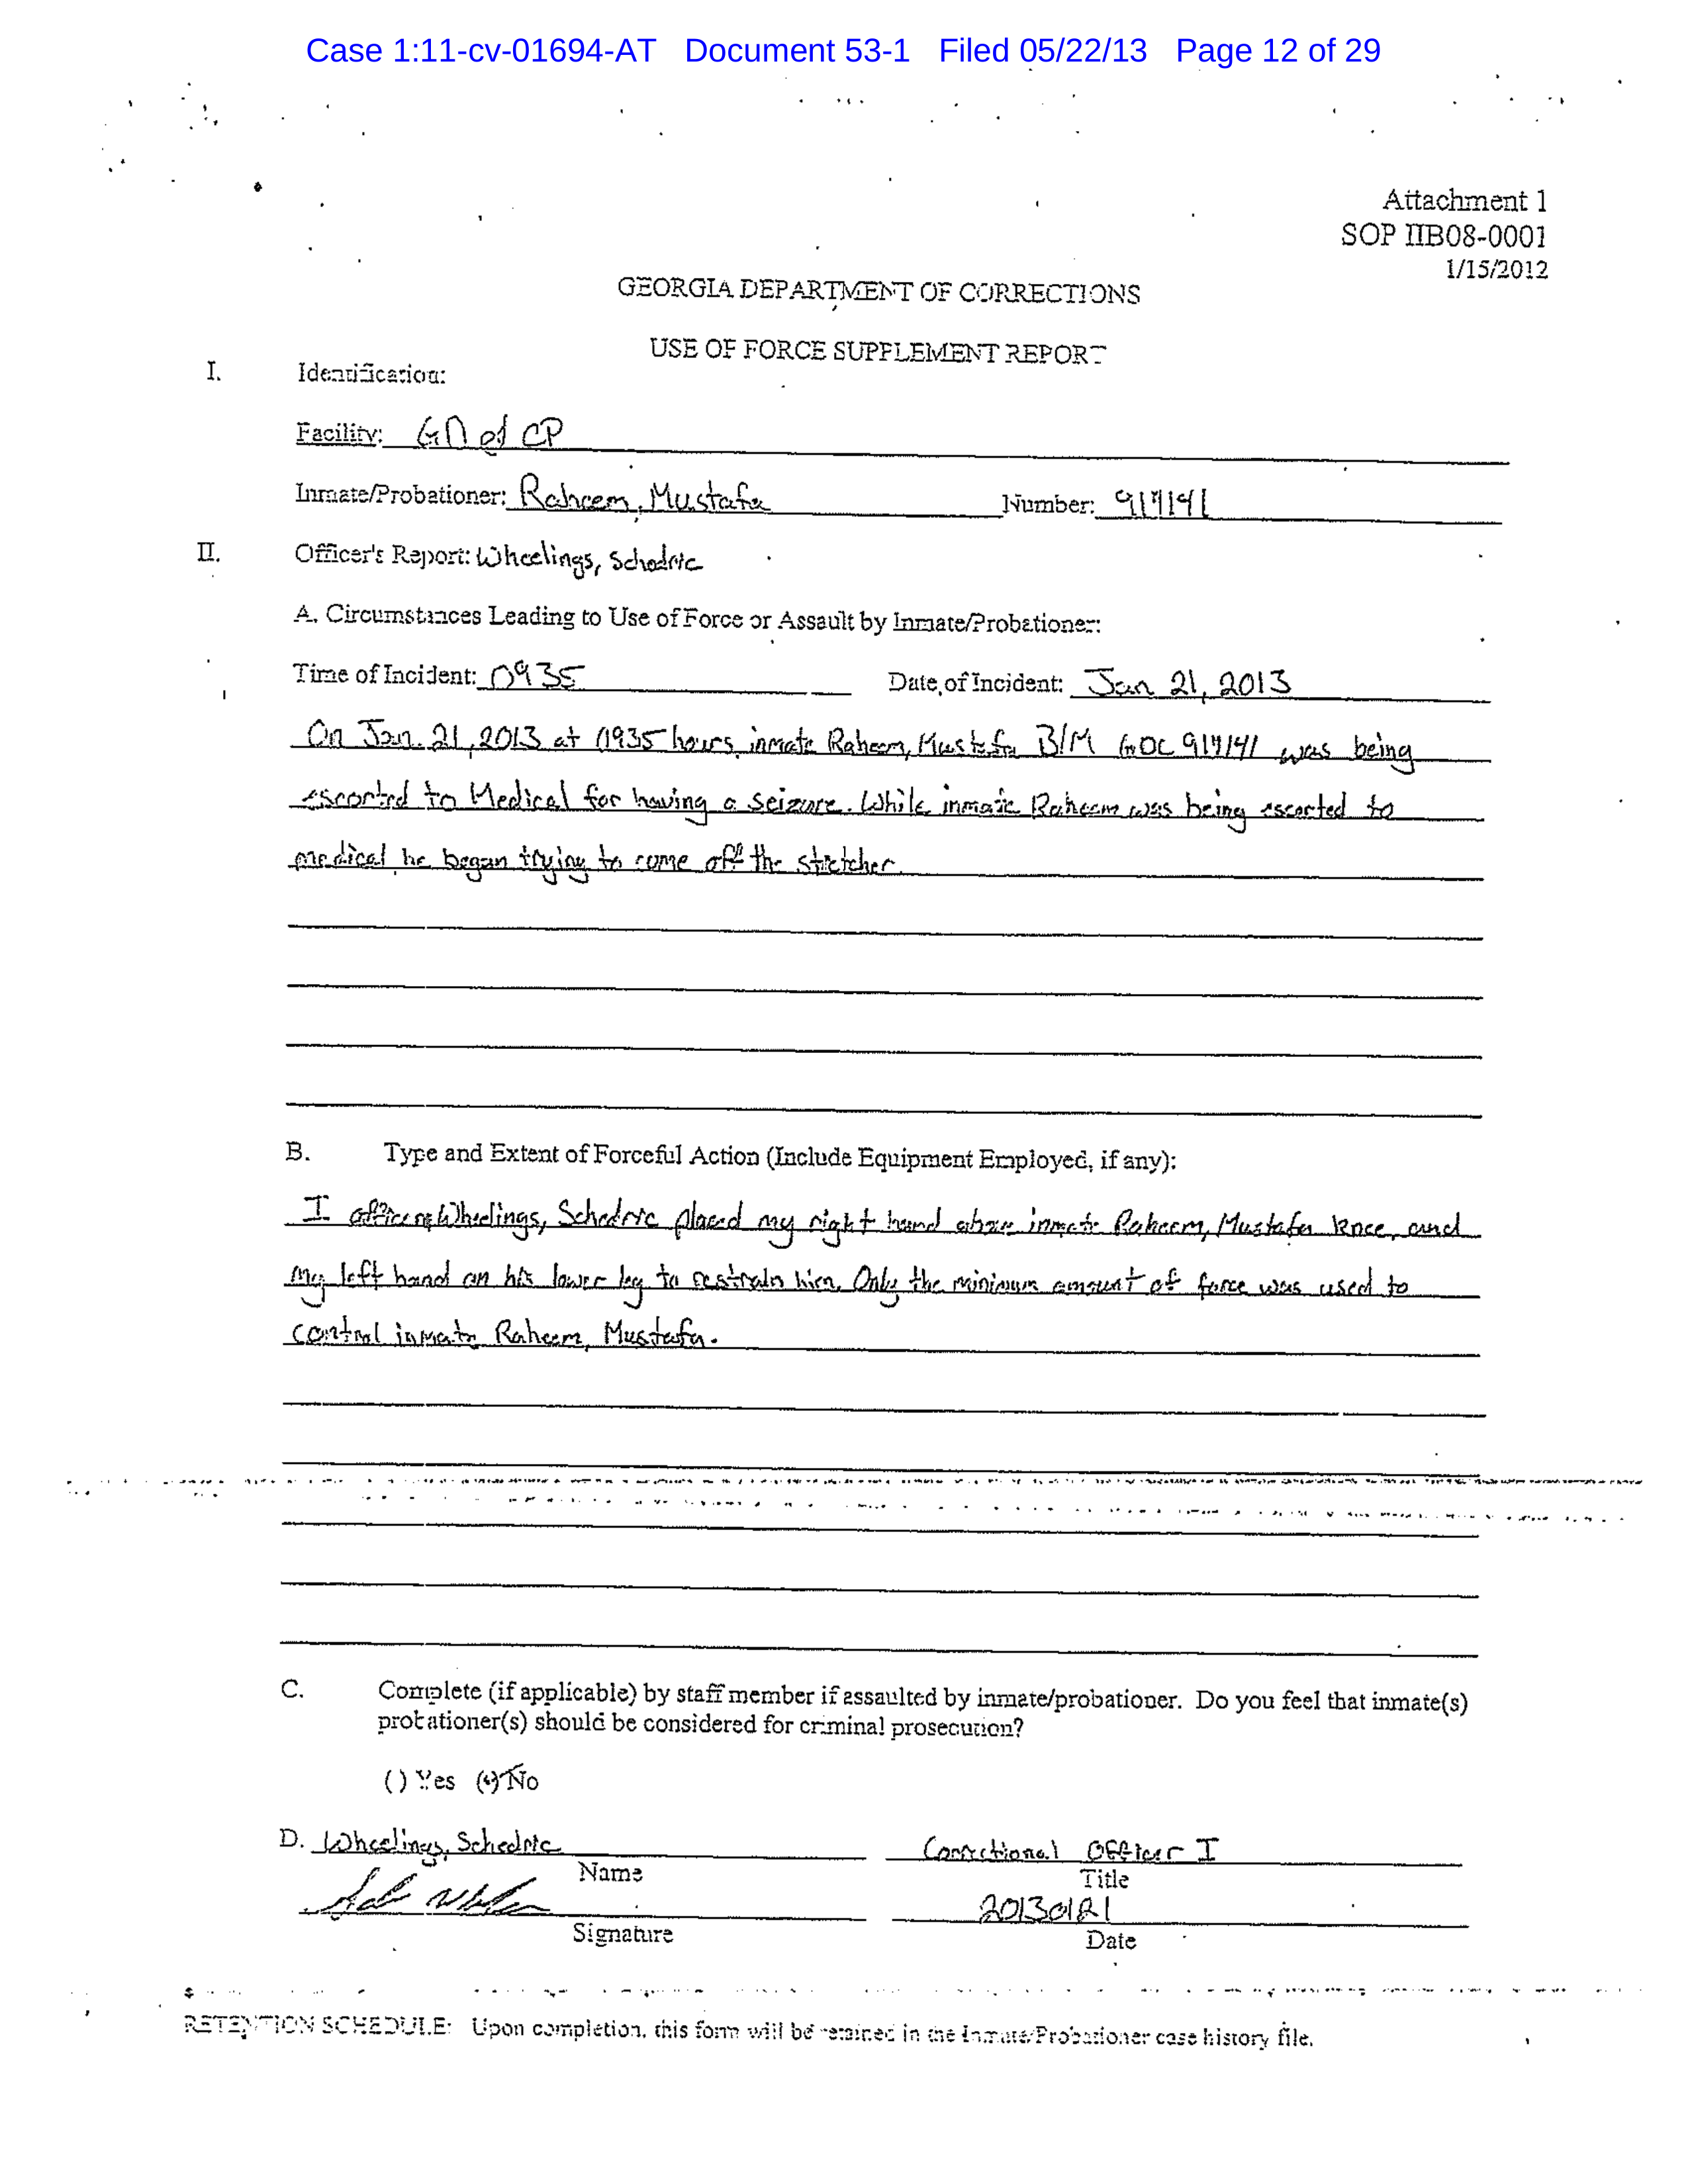 Case 1:11-cv-01694-AT Document 53-1 Filed 05/22/13 Page 12 of 29
Attachment 1
SOP IIB08-0001
1/15/2012
GEORGIA DEPARTMENT OF CORRECTIONS
USE OF FORCE SUPPLEMENT REPORT
I. Identification:
Facility: GD of CP
Inmate/Probationer: Raheem, Mustafa Number: 917141
II. Officer's Report: Wheelings, Schedric
A. Circumstances Leading to Use of Force or Assault by Inmate/Probationer:
Time of Incident: 0935 Date of Incident: Jan 21, 2013
On Jan. 21, 2013 at 0935 hours, inmate Raheem, Mustafa B/M GDC 917141 was being
escorted to Medical for having a seizure. While inmate Raheem was being escorted to
medical he began trying to come off the stretcher.
B. Type and Extent of Forceful Action (Include Equipment Employed, if any):
I officer Wheelings, Schedric placed my right hand above inmate Raheem, Mustafa knee, and
my left hand on his lower leg to restrain him. Only the minimum amount of force was used to
control inmate Raheem, Mustafa.
C. Complete (if applicable) by staff member if assaulted by inmate/probationer. Do you feel that inmate(s)
probationer(s) should be considered for criminal prosecution?
( ) Yes (✓) No
D. Wheelings, Schedric Correctional Officer I
Name Title
20130121
Signature Date
RETENTION SCHEDULE: Upon completion, this form will be retained in the Inmate/Probationer case history file.